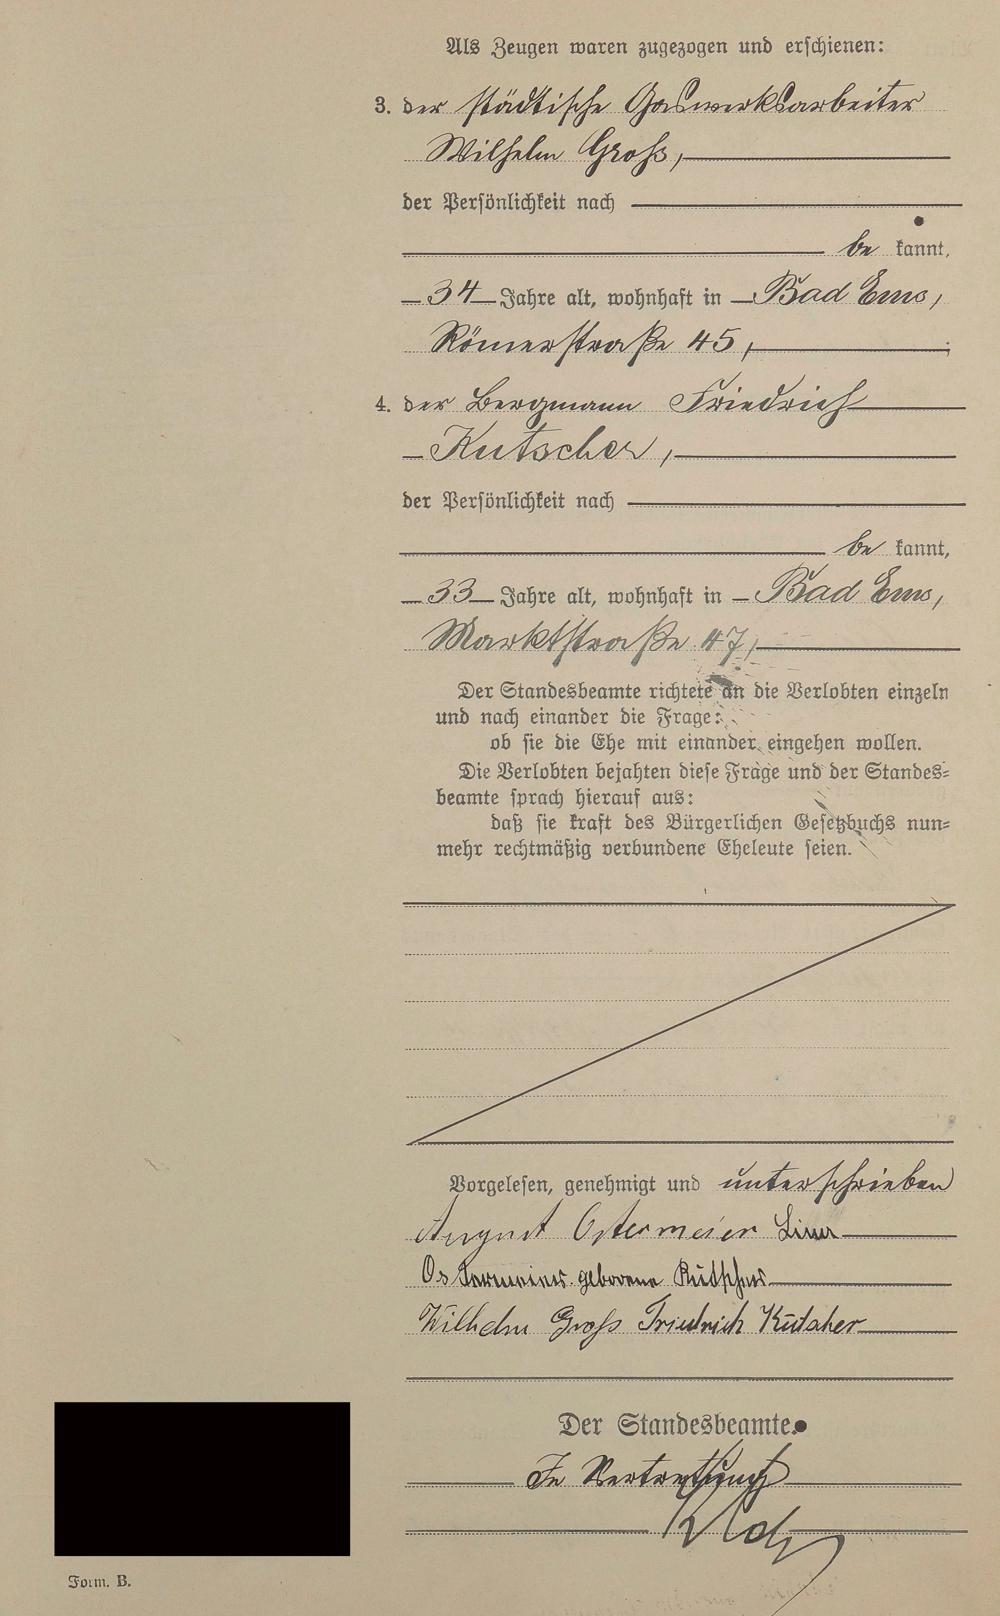 Als Zeugen waren zugezogen und erschienen:
3. der städtische Gaswerksarbeiter
Wilhelm Groß,
der Persönlichkeit nach
be kannt,
34 Jahre alt, wohnhaft in Bad Ems,
Römerstraße 45,
4. der Bergmann Friedrich
Kutscher,
der Persönlichkeit nach
be kannt,
33 Jahre alt, wohnhaft in Bad Ems,
Marktstraße 47,
Der Standesbeamte richtete an die Verlobten einzeln
und nach einander die Frage:
ob sie die Ehe mit einander eingehen wollen.
Die Verlobten bejahten diese Frage und der Standes=
beamte sprach hierauf aus:
daß sie kraft des Bürgerlichen Gesetzbuchs nun=
mehr rechtmäßig verbundene Eheleute seien.
Vorgelesen, genehmigt und unterschrieben
August Ostermeier Lina
Ostermeier geborene Kutscher
Wilhelm Groß Friedrich Kutscher
Der Standesbeamte.
In Vertretung
Form. B.